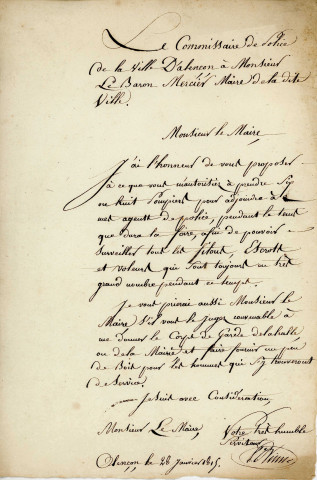 Le Commissaire de Police
de la Ville D'alençon à Monsieur
Le Baron Mercier Maire de la dite
Ville.
Monsieur le Maire,
J'ai l'honneur de vous proposer
à ce que vous m'autorisiez à prendre Six
ou huit pompiers pour adjoindre à
mes agents de police, pendant le tems
que dura la foire, afin de pouvoir
Surveiller tous les filous, Escrots
et Voleurs qui Sont toujours en très
grand nombre pendant ce temps.
Je vous priérai aussi Monsieur le
Maire S'il vous le Jugez convenable à
me donner le Corps de Garde de la halle
ou de la Mairie et faire fournir un peu
de Bois pour les hommes qui S'y trouveront
de Service.
Je Suis avec Considération
Monsieur Le Maire,
Votre très humble
Serviteur
Alençon le 28 Janvier 1815.